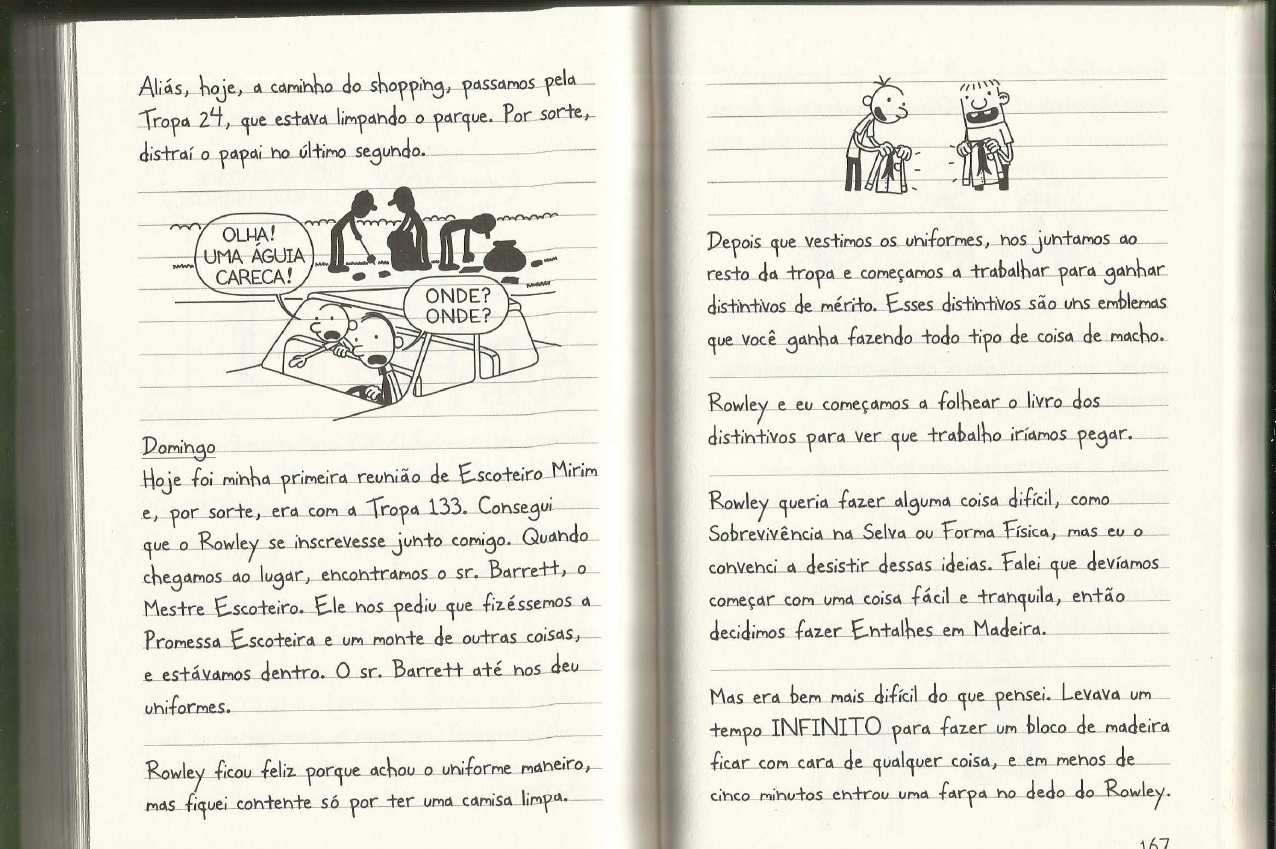 Aliás, hoje, a caminho do shopping, passamos pela
Tropa 24, que estava limpando o parque. Por sorte,
distraí o papai no último segundo.
OLHA!
UMA ÁGUIA
CARECA!
ONDE?
ONDE?
Domingo
Hoje foi minha primeira reunião de Escoteiro Mirim
e, por sorte, era com a Tropa 133. Consegui
que o Rowley se inscrevesse junto comigo. Quando
chegamos ao lugar, encontramos o sr. Barrett, o
Mestre Escoteiro. Ele nos pediu que fizéssemos a
Promessa Escoteira e um monte de outras coisas,
e estávamos dentro. O sr. Barrett até nos deu
uniformes.
Rowley ficou feliz porque achou o uniforme maneiro,
mas fiquei contente só por ter uma camisa limpa.
Depois que vestimos os uniformes, nos juntamos ao
resto da tropa e começamos a trabalhar para ganhar
distintivos de mérito. Esses distintivos são uns emblemas
que você ganha fazendo todo tipo de coisa de macho.
Rowley e eu começamos a folhear o livro dos
distintivos para ver que trabalho iríamos pegar.
Rowley queria fazer alguma coisa difícil, como
Sobrevivência na Selva ou Forma Física, mas eu o
convenci a desistir dessas ideias. Falei que devíamos
começar com uma coisa fácil e tranquila, então
decidimos fazer Entalhes em Madeira.
Mas era bem mais difícil do que pensei. Levava um
tempo INFINITO para fazer um bloco de madeira
ficar com cara de qualquer coisa, e em menos de
cinco minutos entrou uma farpa no dedo do Rowley.
167